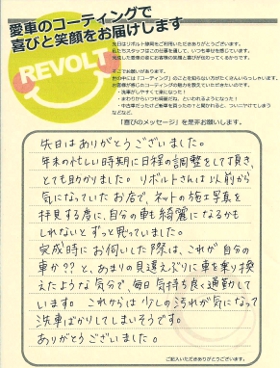 愛車のコーティングで
喜びと笑顔をお届けします
REVOLT
先日はリボルト静岡をご利用いただきありがとうございます。
「喜びのメッセージ」を是非お願いします。
先日はありがとうございました。
年末の忙しい時期に日程の調整をして頂き、
とても助かりました。リボルトさんは以前から
気になっていたお店で、ネットの施工写真を
拝見する度に、自分の車も綺麗になるかも
しれないとずっと思っていました。
完成時にお伺いした際は、これが自分の
車か??と、あまりの見違えぶりに車を乗り換
えたような気分で、毎日気持ち良く通勤して
います。これからは少しの汚れが気になって
洗車ばかりしてしまいそうです。
ありがとうございました。
ご記入いただきありがとうございます。